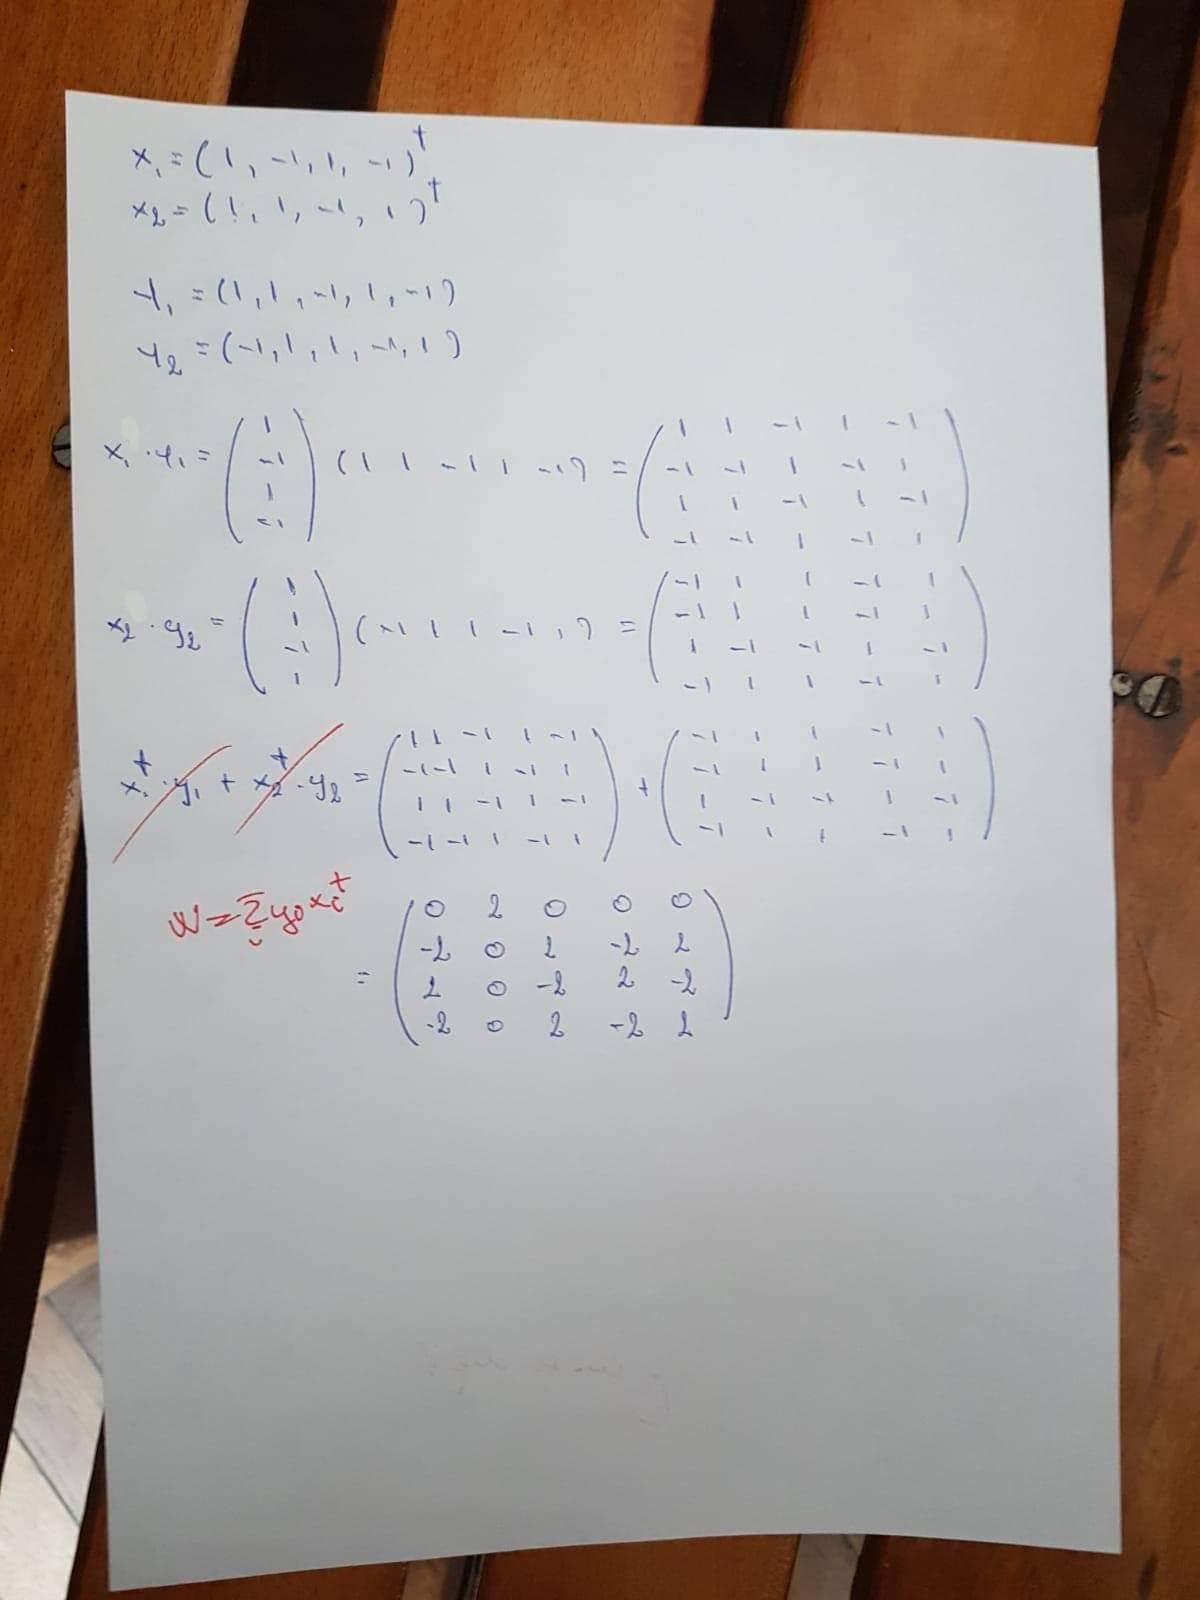 x₁ = (1, -1, 1, -1)ᵗ
x₂ = (1, 1, -1, 1)ᵗ
Y₁ = (1, 1, -1, 1, -1)
Y₂ = (-1, 1, 1, -1, 1)
x₁ · Y₁ = ( 1 ) (1 1 -1 1 -1) = ( 1 1 -1 1 -1 )
-1 -1 -1 1 -1 1
1 1 1 -1 1 -1
-1 -1 -1 1 -1 1
x₂ · y₂ = ( 1 ) (-1 1 1 -1 1) = ( -1 1 1 -1 1 )
1 -1 1 1 -1 1
-1 1 -1 -1 1 -1
1 -1 1 1 -1 1
x₁ᵗ · y₁ + x₂ᵗ · y₂ = ( 1 1 -1 1 -1 ) + ( -1 1 1 -1 1 )
-1 -1 1 -1 1 -1 1 1 -1 1
1 1 -1 1 -1 1 -1 -1 1 -1
-1 -1 1 -1 1 -1 1 1 -1 1
W = Σ xᵗ
= ( 0 2 0 0 0 )
-2 0 2 -2 2
2 0 -2 2 -2
-2 0 2 -2 2